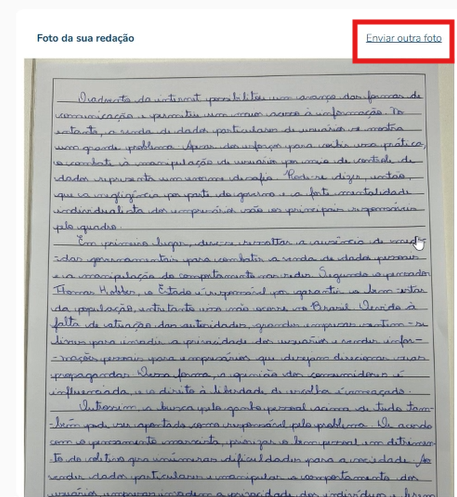 Foto da sua redação
Enviar outra foto
O advento da internet possibilitou um avanço das formas de
comunicação e permitiu um maior acesso à informação. No
entanto, a venda de dados particulares de usuários se mostra
um grande problema. Apesar dos esforços para coibir essa prática,
o combate à manipulação de usuários por meio de controle de
dados representa um enorme desafio. Pode-se dizer, então,
que a negligência por parte do governo e a forte mentalidade
individualista dos empresários são os principais responsáveis
pelo quadro.
Em primeiro lugar, deve-se ressaltar a ausência de medi-
-das governamentais para combater a venda de dados pessoais
e a manipulação do comportamento nas redes. Segundo o pensador
Thomas Hobbes, o Estado é responsável por garantir o bem-estar
da população, entretanto isso não ocorre no Brasil. Devido à
falta de atuação das autoridades, grandes empresas sentem-se
livres para invadir a privacidade dos usuários e vender infor-
-mações pessoais para empresários que desejam direcionar suas
propagandas. Dessa forma, a opinião dos consumidores é
influenciada, e o direito à liberdade de escolha é ameaçado.
Outrossim, a busca pelo ganho pessoal acima de tudo tam-
-bém pode ser apontada como responsável pelo problema. De acordo
com o pensamento marxista, priorizar o bem pessoal em detrimen-
to do coletivo gera inúmeras dificuldades para a sociedade. Ao
vender dados particulares e manipular o comportamento dos
usuários, empresas invadem a privacidade dos indivíduos e ferem